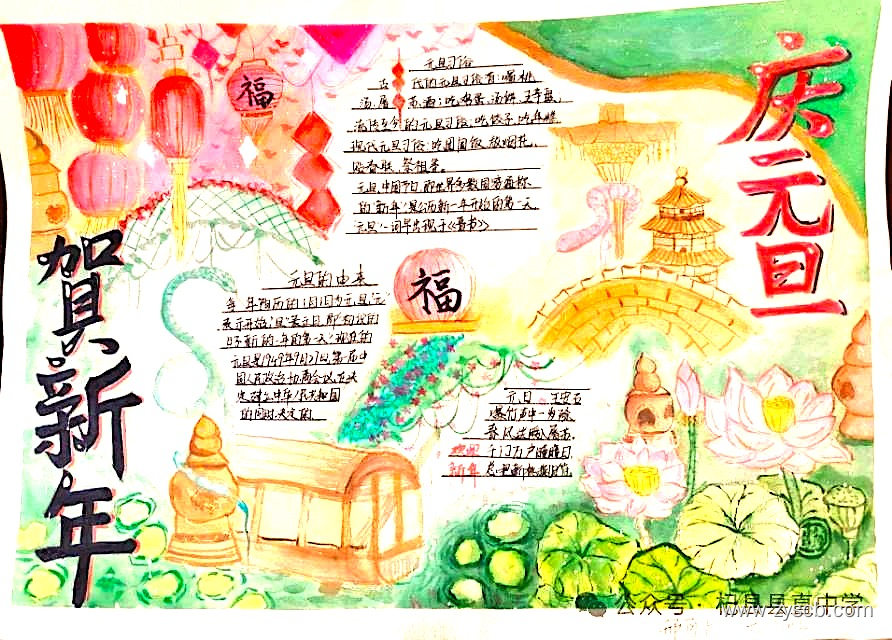 庆元旦
贺新年
福
元旦习俗
古代的元旦习俗有:喝桃
汤、屠苏酒;吃
流传至今的元旦习俗:吃饺子、吃年糕
现代元旦习俗:吃团圆饭、放烟花、
贴春联、祭祖等。
元旦,中国节日,即世界多数国家通称
的“新年”,是公历新一年开始的第一天
“元旦”一词最早出现于《晋书》
元旦的由来
每年阳历的1月1日为元旦,“元”
表示开始,“旦”
的第一天
元旦是1949年9月27日,第一届中
国人民政治协商会议,在决
定建立中华人民共和国
的同时,决定的。
福
元日 王安石
爆竹声中一岁除
春风送暖入屠苏。
千门万户曈曈日
总把新桃换旧符
欢迎
新年
公众号·杞县县直中学
www.zyscb.com